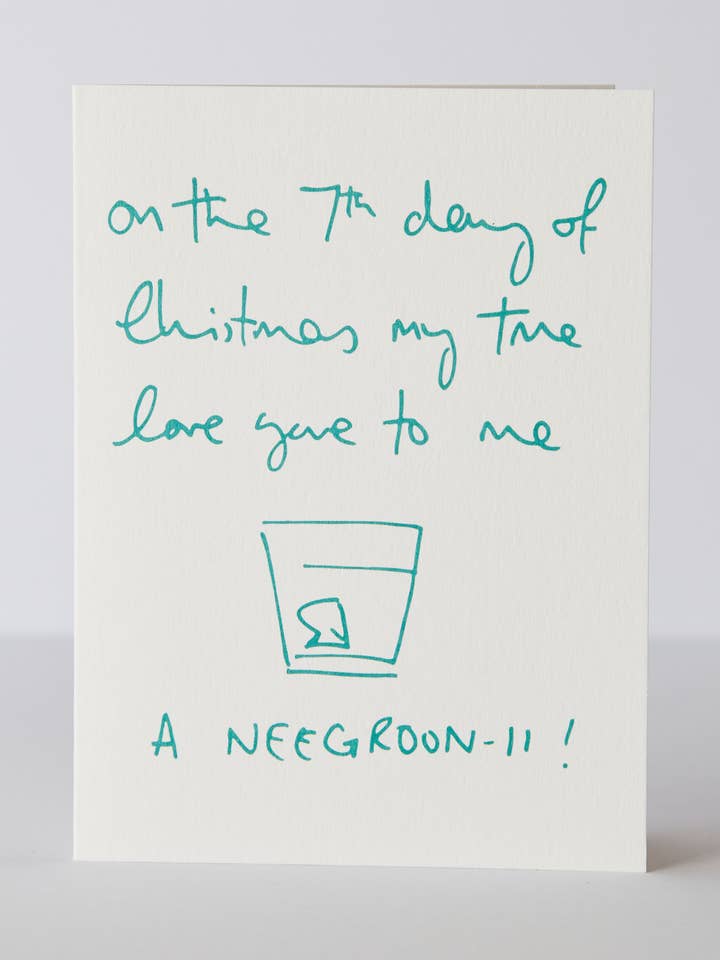 on the 7th day of
Christmas my true
love gave to me
A NEEGROON-II!